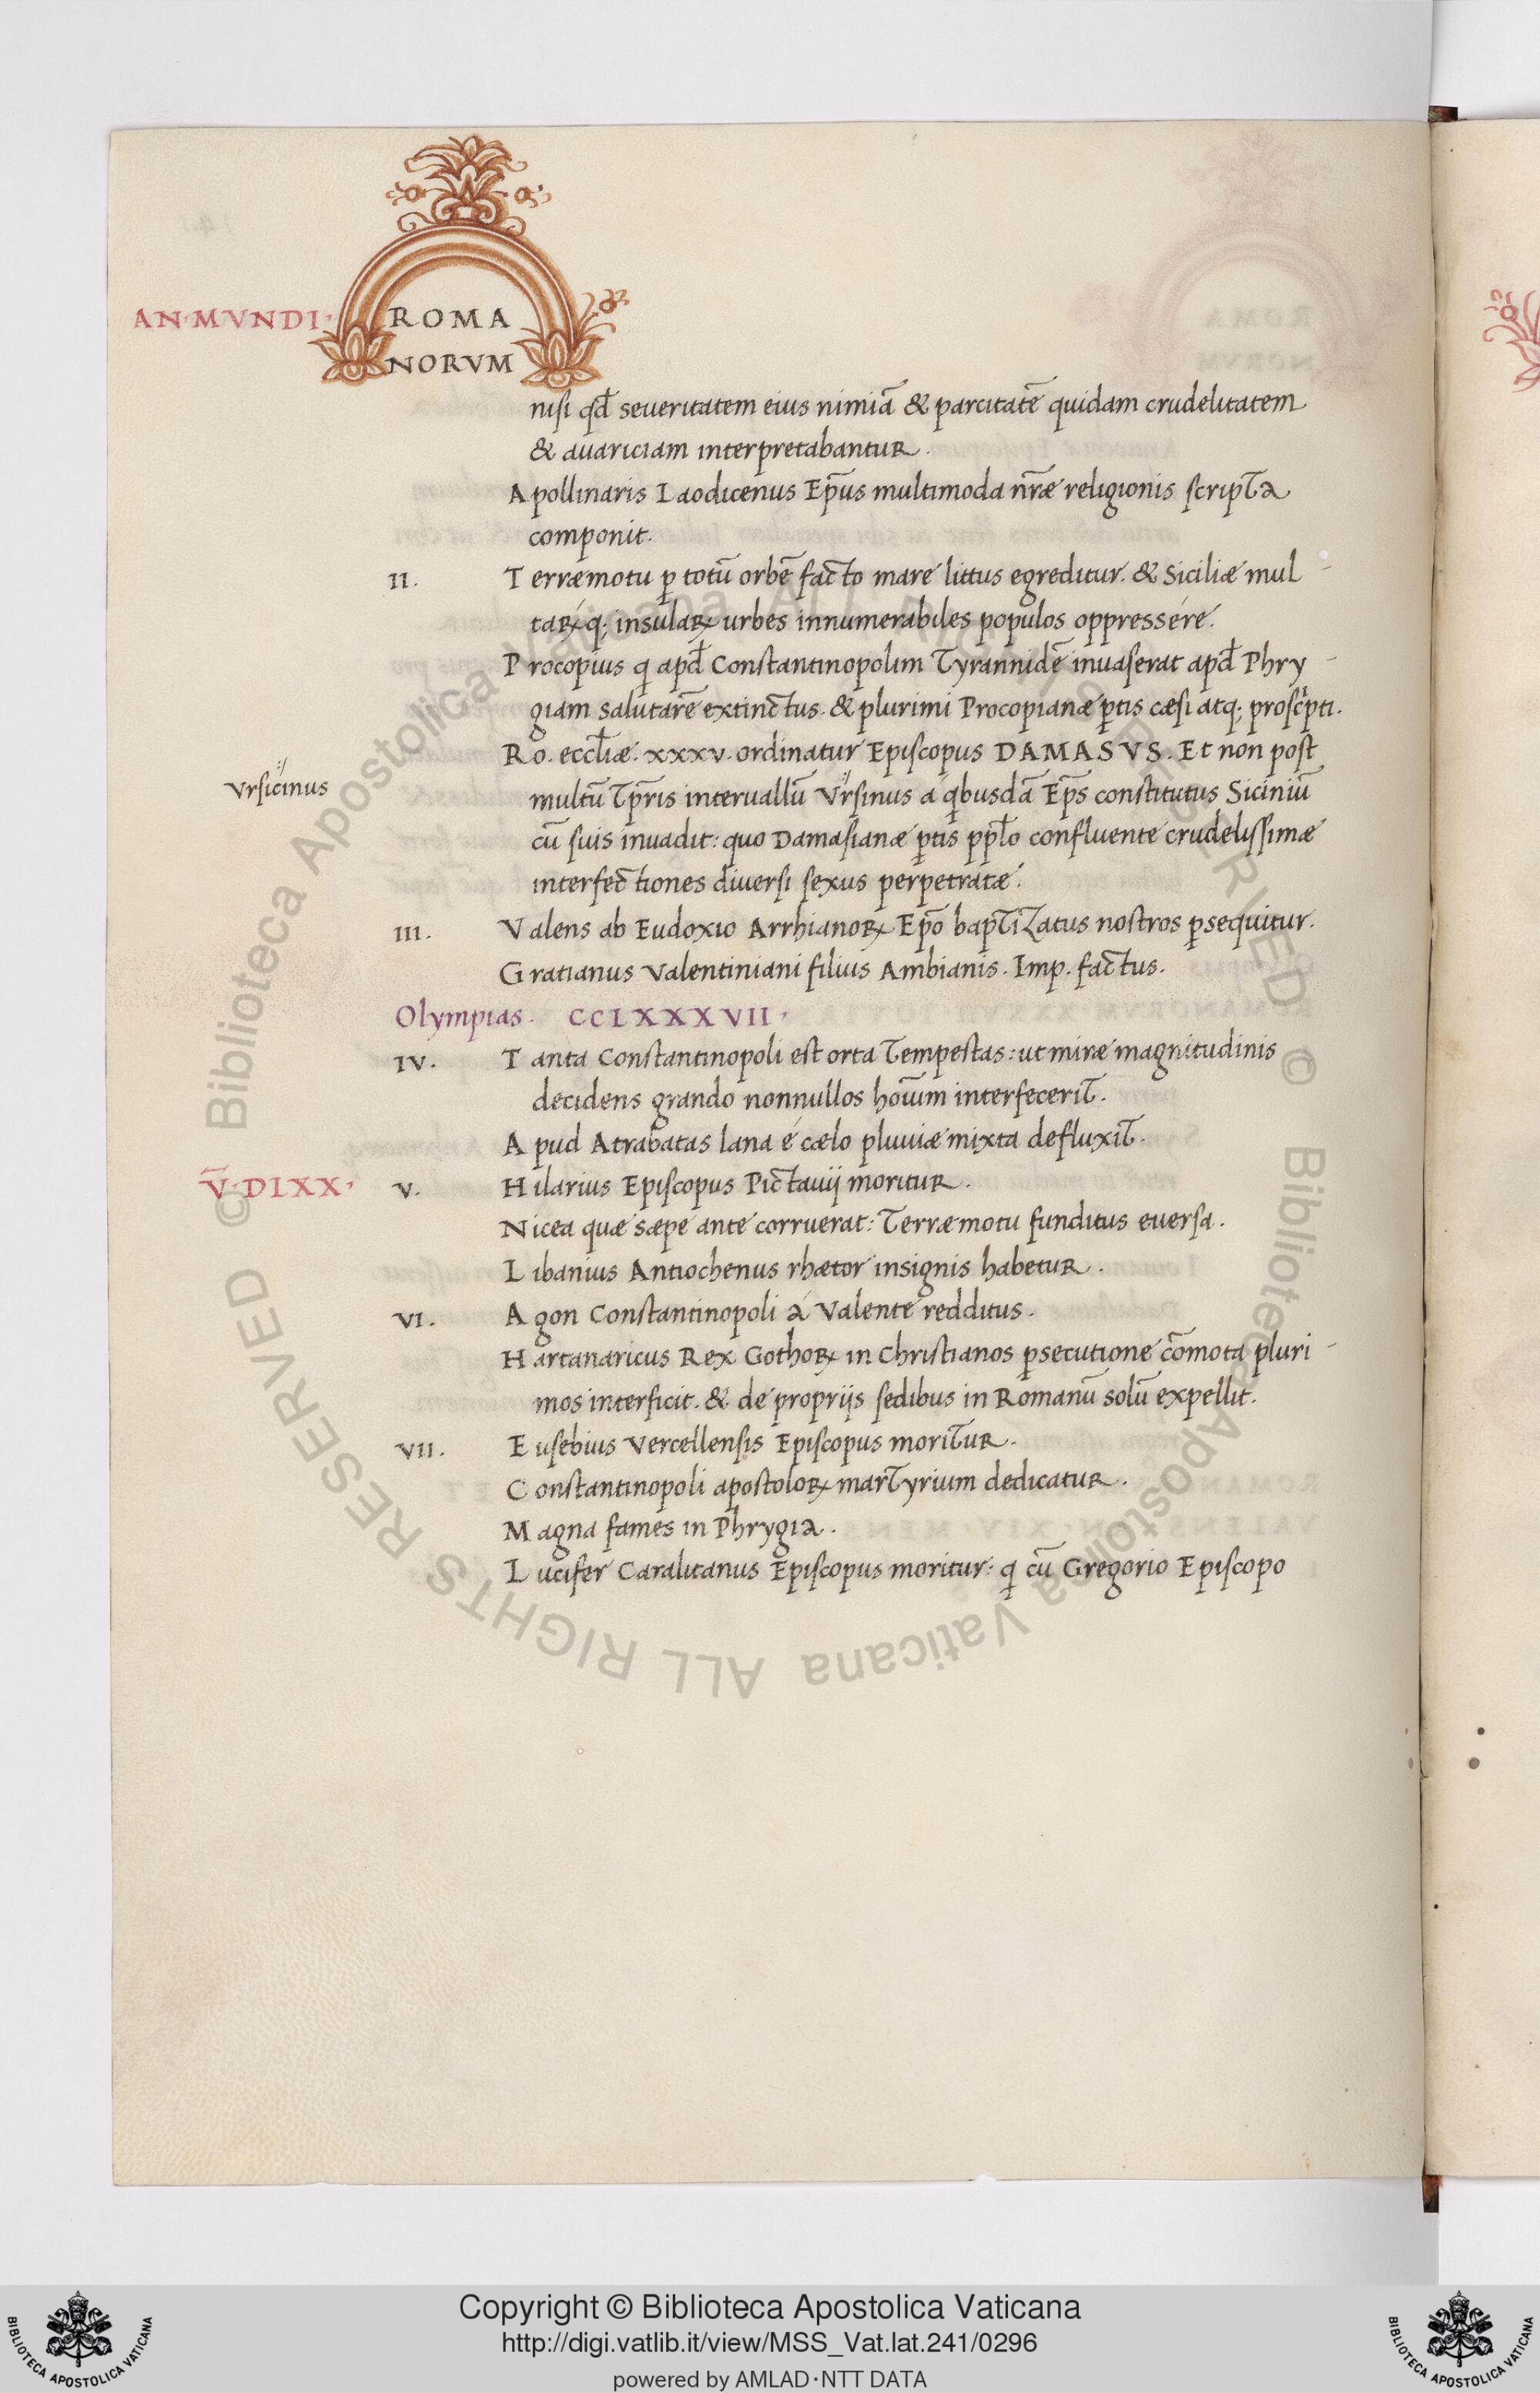 AN·MVNDI·
ROMA
NORVM
nisi qđ seueritatem eius nimiā & parcitatē quidam crudelitatem
& auariciam interpretabantur.
Apollinaris Laodicenus Ep̄us multimoda nr̄æ religionis scripta
componit.
II. Terræmotu ꝑ totū orbē facto mare littus egreditur. & Siciliæ mul-
taꝝq; insulaꝝ urbes innumerabiles populos oppressére.
Procopius q apđ Constantinopolim Tyrannidē inuaserat apđ Phry-
giam salutarē extinctus. & plurimi Procopianæ ꝑtis cæsi atq; proscpti.
Ro. eccłiæ. xxxv. ordinatur Episcopus DAMASVS. Et non post
Vrsicinus
multū tꝑris interuallū Vrsinus a qbusdā Ep̄s constitutus Siciniū
cū suis inuadit: quo Damasianæ ꝑtis ppło confluente crudelissimæ
interfectiones diuersi sexus perpetratæ.
III. Valens ab Eudoxio Arrhianoꝝ Ep̄o baptizatus nostros ꝑsequitur.
Gratianus Valentiniani filius Ambianis. Imp. factus.
Olympias. CCLXXXVII·
IV. Tanta Constantinopoli est orta Tempestas: ut miræ magnitudinis
decidens grando nonnullos hoīum interfecerit.
Apud Atrabatas lana é cælo pluuiæ mixta defluxit.
V̄·DLXX· V. Hilarius Episcopus Pictauij moritur.
Nicea quæ sæpe ante corruerat: Terræmotu funditus euersa.
Libanius Antiochenus rhætor insignis habetur.
VI. Agon Constantinopoli á Valente redditus.
Hartanaricus Rex Gothoꝝ in Christianos ꝑsecutione cōmota pluri-
mos interficit. & de proprijs sedibus in Romanū solū expellit.
VII. Eusebius Vercellensis Episcopus moritur.
Constantinopoli apostoloꝝ martyrium dedicatur.
Magna fames in Phrygia.
Lucifer Caralitanus Episcopus moritur: q cū Gregorio Episcopo
© Biblioteca Apostolica Vaticana ALL RIGHTS RESERVED
© Biblioteca Apostolica Vaticana ALL RIGHTS RESERVED
Copyright © Biblioteca Apostolica Vaticana
http://digi.vatlib.it/view/MSS_Vat.lat.241/0296
powered by AMLAD·NTT DATA
BIBLIOTECA APOSTOLICA VATICANA
BIBLIOTECA APOSTOLICA VATICANA